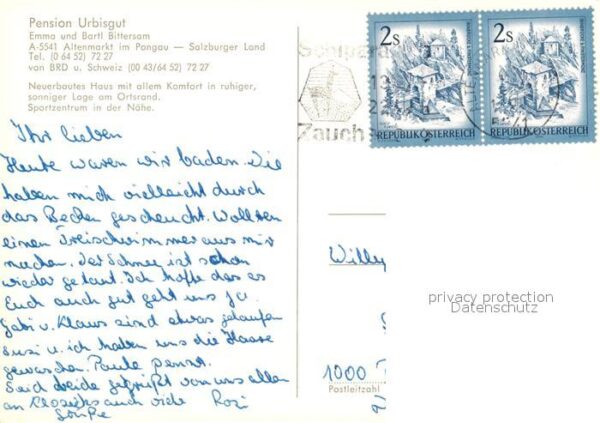 Pension Urbisgut
Emma und Bartl Bittersam
A-5541 Altenmarkt im Pongau — Salzburger Land
Tel. (0 64 52) 72 27
von BRD u. Schweiz (00 43/64 52) 72 27
Neuerbautes Haus mit allem Komfort in ruhiger,
sonniger Lage am Ortsrand.
Sportzentrum in der Nähe.
Ihr lieben
Heute waren wir baden. Die
haben mich vielleicht durch
das Becken gescheucht. Wollten
einen Freischwimmer aus mir
machen. Der Schnee ist schon
wieder getaut. Ich hoffe das es
Euch auch gut geht uns ja.
Gabi u. Klaus sind etwas gelaufen
Susi u. ich haben uns die Haare
gewaschen. Paule pennt.
Seid beide gegrüßt von uns allen
an auch viele Rosi
Grüße
2s
REPUBLIK ÖSTERREICH
2s
REPUBLIK ÖSTERREICH
Zauch
Willy
privacy protection
Datenschutz
1000
Postleitzahl